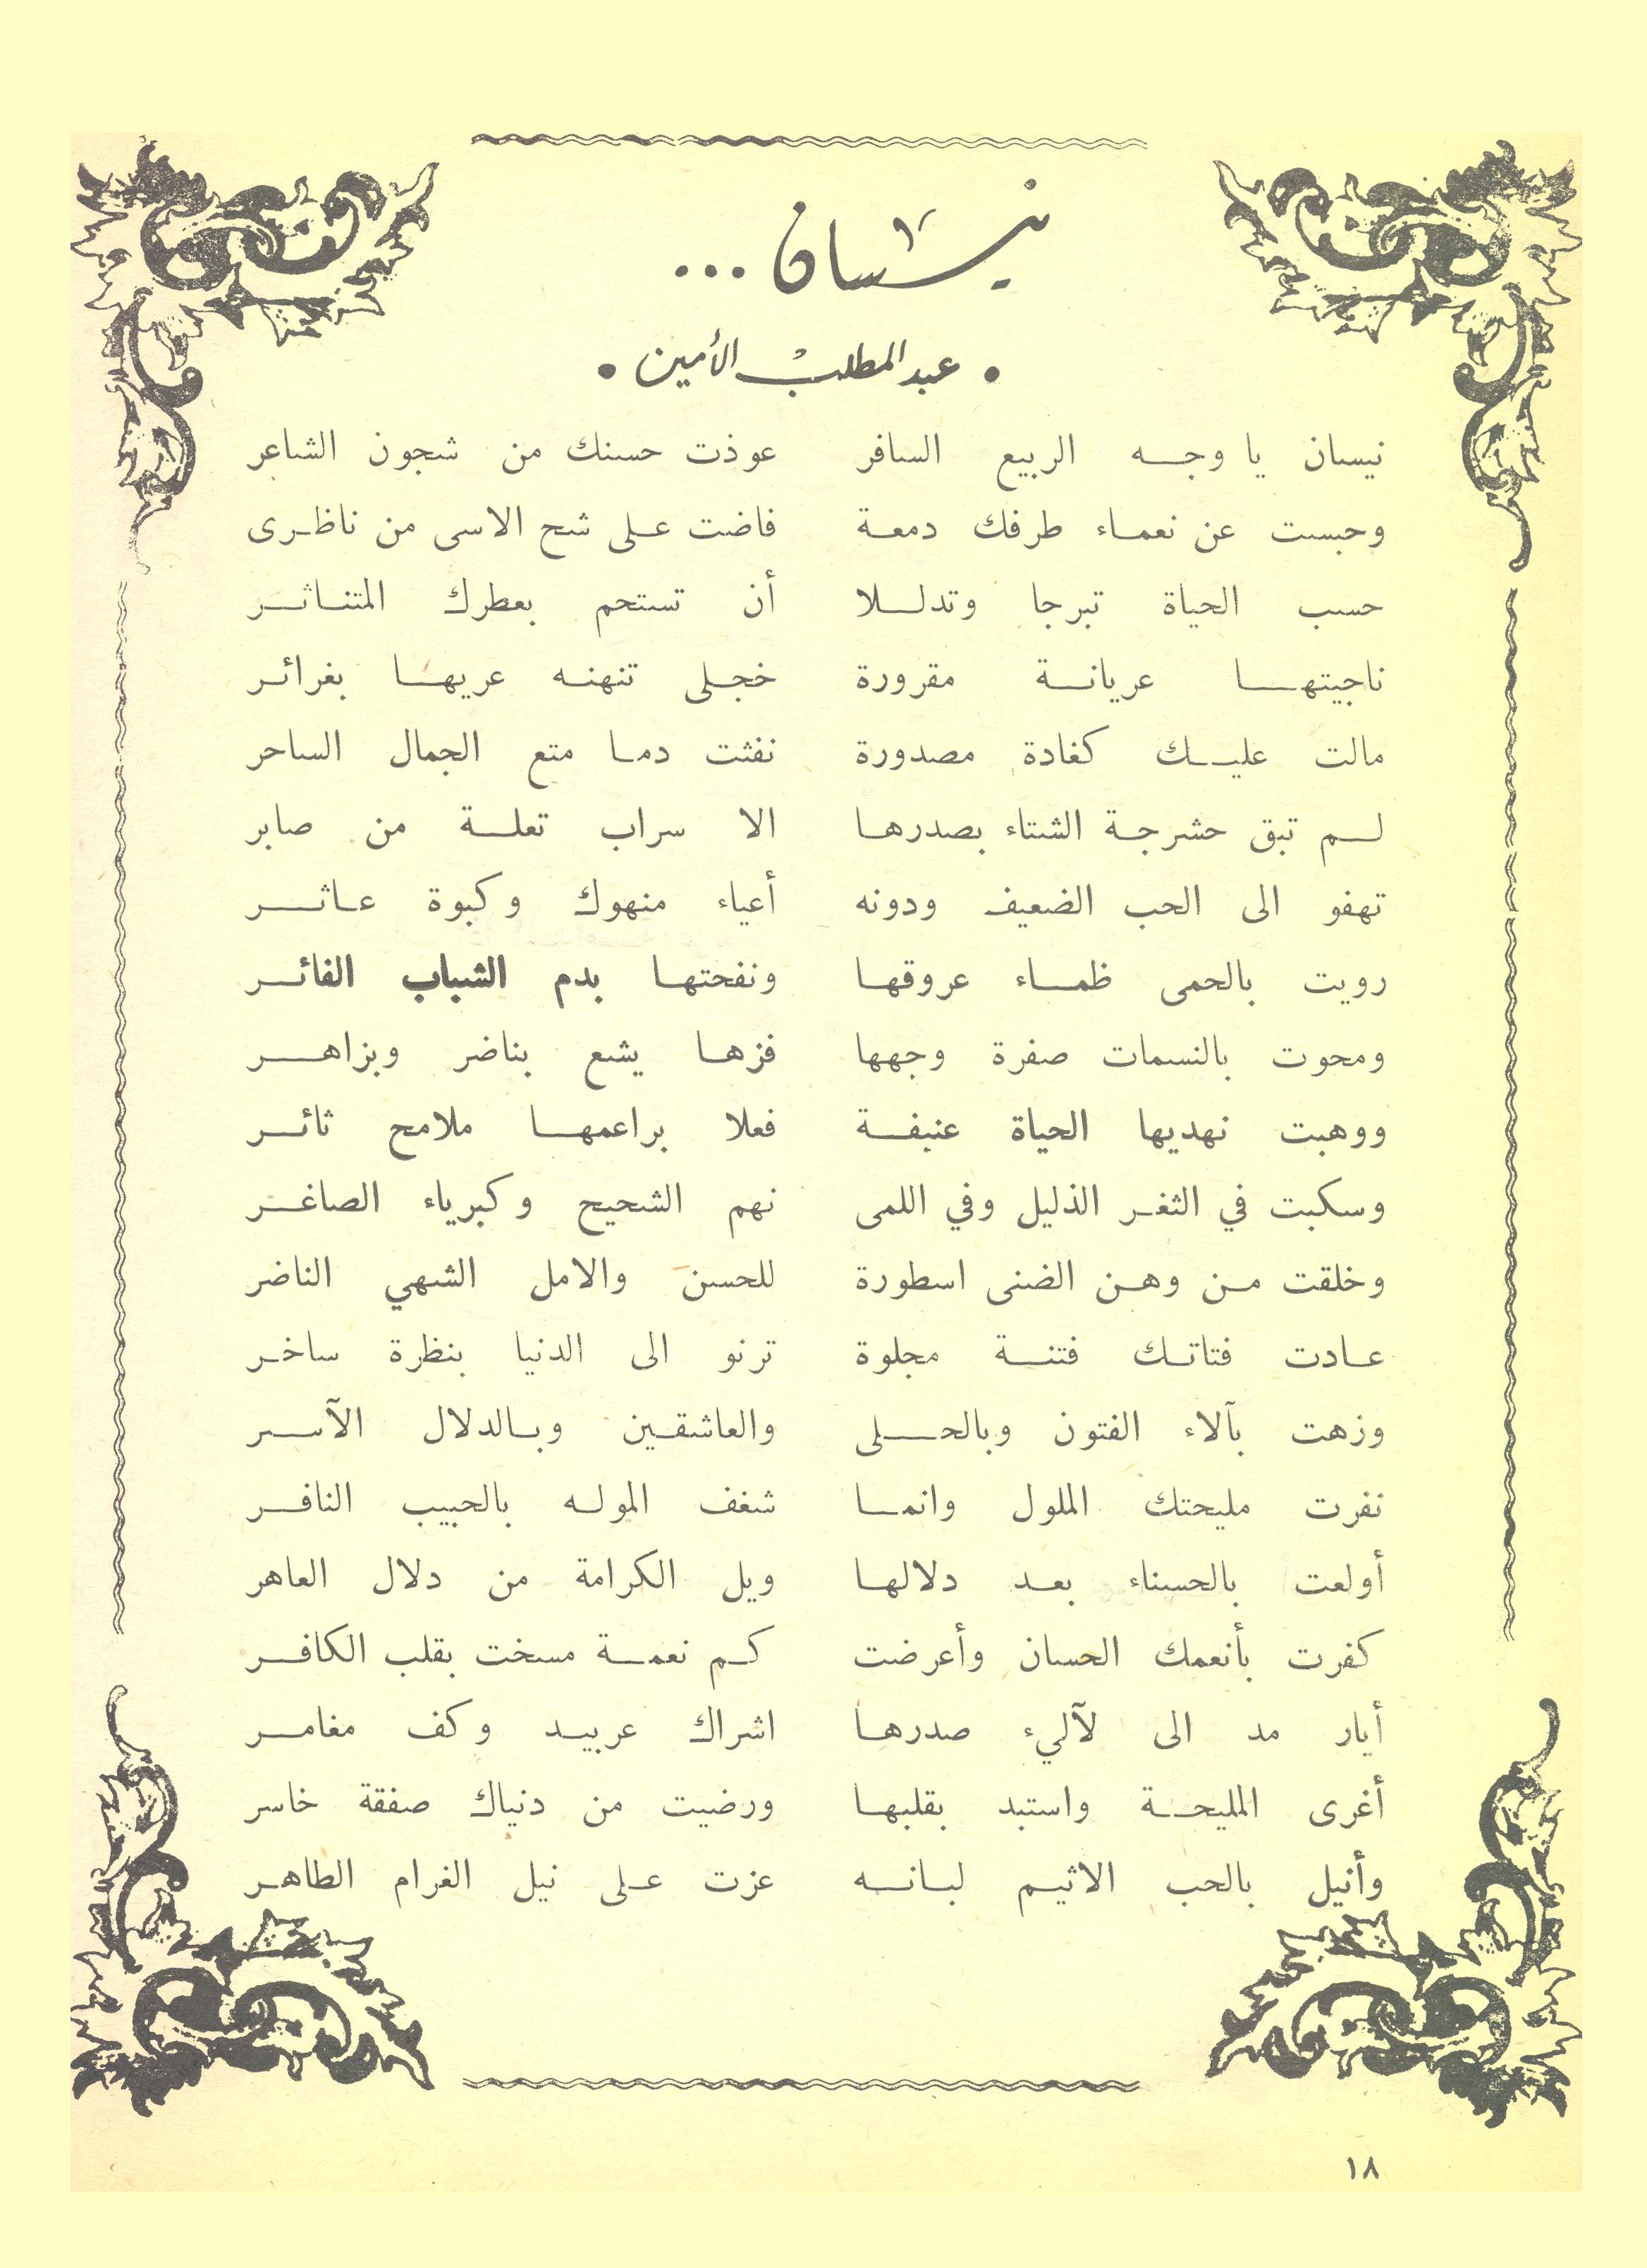 نيسان ...
• عبد المطلب الأمين •
نيسان يا وجه الربيع السافر عوذت حسنك من شجون الشاعر
وحبست عن نعماء طرفك دمعة فاضت على شح الاسى من ناظرى
حسب الحياة تبرجا وتدللا أن تستحم بعطرك المتناثر
ناجيتها عريانة مقرورة خجلى تنهنه عريها بغرائر
مالت عليك كغادة مصدورة نفثت دما متع الجمال الساحر
لم تبق حشرجة الشتاء بصدرها الا سراب تعلة من صابر
تهفو الى الحب الضعيف ودونه أعياء منهوك وكبوة عاثر
رويت بالحمى ظماء عروقها ونفحتها بدم الشباب الفائر
ومحوت بالنسمات صفرة وجهها فزها يشع بناضر وبزاهر
ووهبت نهديها الحياة عنيفة فعلا براعمها ملامح ثائر
وسكبت في الثغر الذليل وفي اللمى نهم الشحيح وكبرياء الصاغر
وخلقت من وهن الضنى اسطورة للحسن والامل الشهي الناضر
عادت فتاتك فتنة مجلوة ترنو الى الدنيا بنظرة ساخر
وزهت بآلاء الفتون وبالحلى والعاشقين وبالدلال الآسر
نفرت مليحتك الملول وانما شغف الموله بالحبيب النافر
أولعت بالحسناء بعد دلالها ويل الكرامة من دلال العاهر
كفرت بأنعمك الحسان وأعرضت كم نعمة مسخت بقلب الكافر
أيار مد الى لآليء صدرها اشراك عربيد وكف مغامر
أغرى المليحة واستبد بقلبها ورضيت من دنياك صفقة خاسر
وأنيل بالحب الاثيم لبانه عزت على نيل الغرام الطاهر
١٨